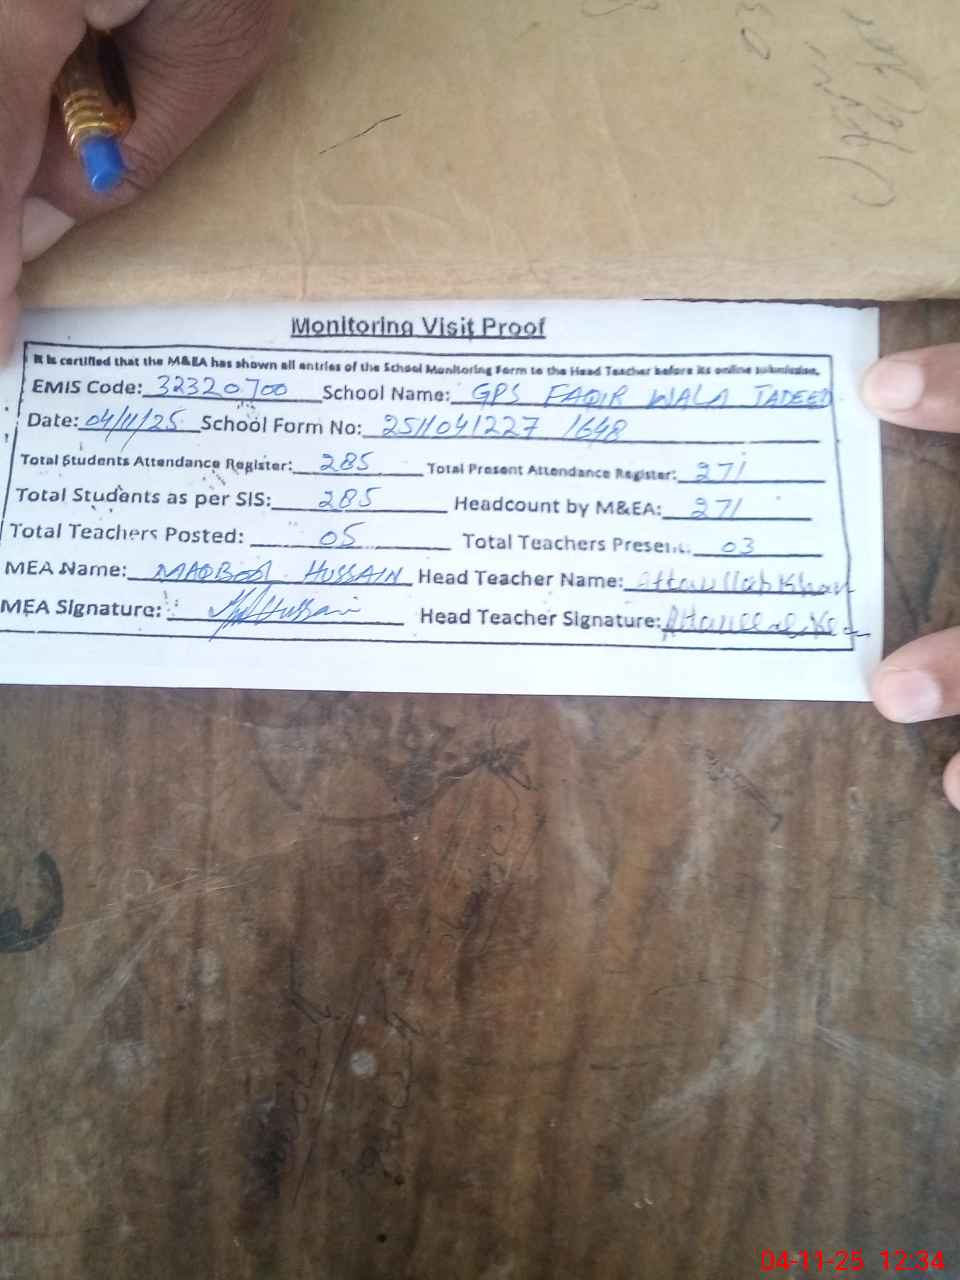 Monitoring Visit Proof
It is certified that the M&EA has shown all entries of the School Monitoring Form to the Head Teacher before its online submission.
EMIS Code: 32320700 School Name: GPS FAQIR WALA JADEED
Date: 04/11/25 School Form No: 2511041227 1648
Total Students Attendance Register: 285 Total Present Attendance Register: 271
Total Students as per SIS: 285 Headcount by M&EA: 271
Total Teachers Posted: 05 Total Teachers Present: 03
MEA Name: MAQBOOL HUSSAIN Head Teacher Name: Attaullah Khan
MEA Signature: Hussain Head Teacher Signature:
04-11-25 12:34